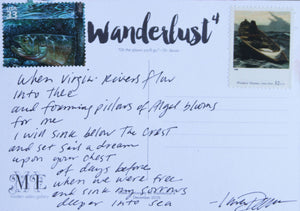 13
Wanderlust 4
"Oh the places you'll go." - Dr. Seuss
When Virgin Rivers flow
into thee
and foaming pillars of Algal blooms
for me
I will sink below the Crest
and set sail a dream
upon your chest
of days before
when we were free
and sink my sorrows
deeper into sea
MF
December 2020
32